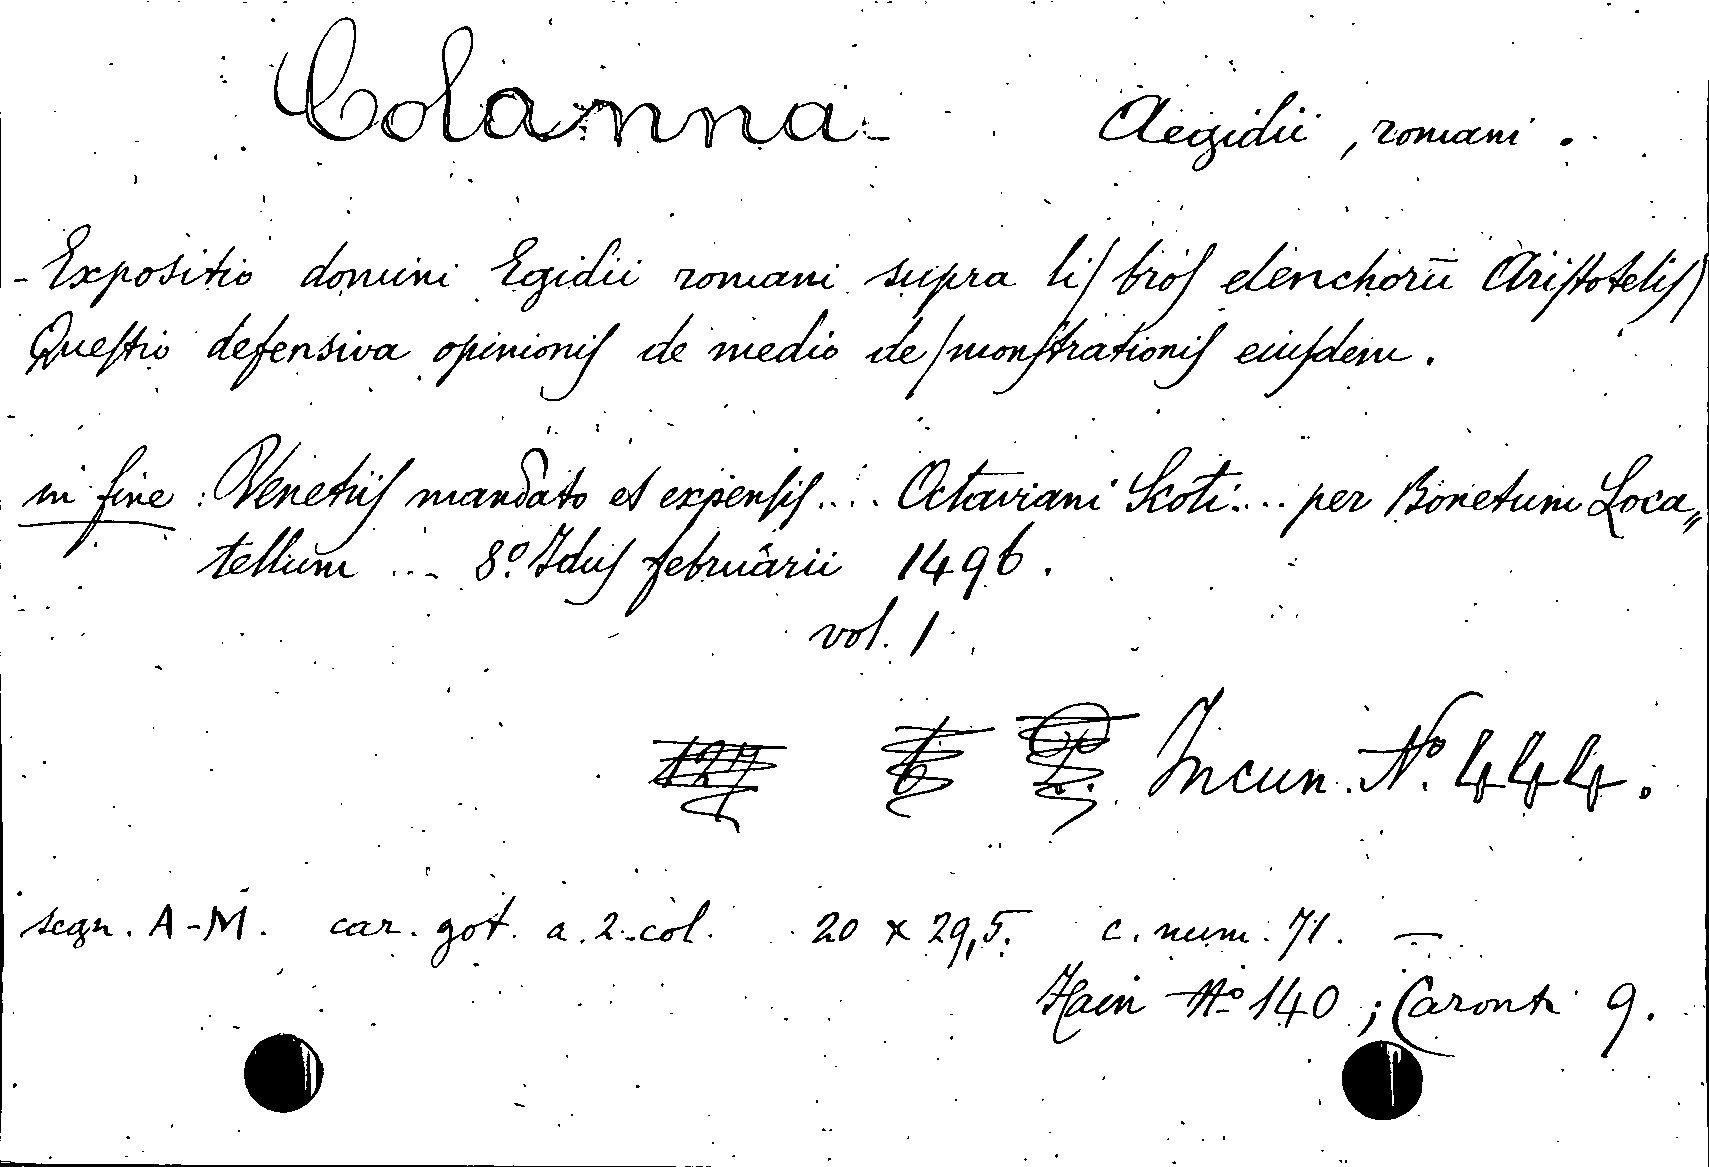 Colanna Aegidii, romani.
- Expositio domini Egidii romani supra li/broſ elenchorū Ariſtoteliſ/
Queſtio defensiva opinioniſ de medio de/monſtrationiſ eiuſdem.
in fine: Venetiiſ mandato et expenſiſ.... Octaviani Scoti.... per Bonetum Loca„
tellum ... 8º Iduſ februarii 1496.
vol. 1
Incun. Nº 444.
segn. A-M. car. got. a. 2. col. 20 x 29,5. c. num. 71. —
Hain Nº 140; Caronti 9.